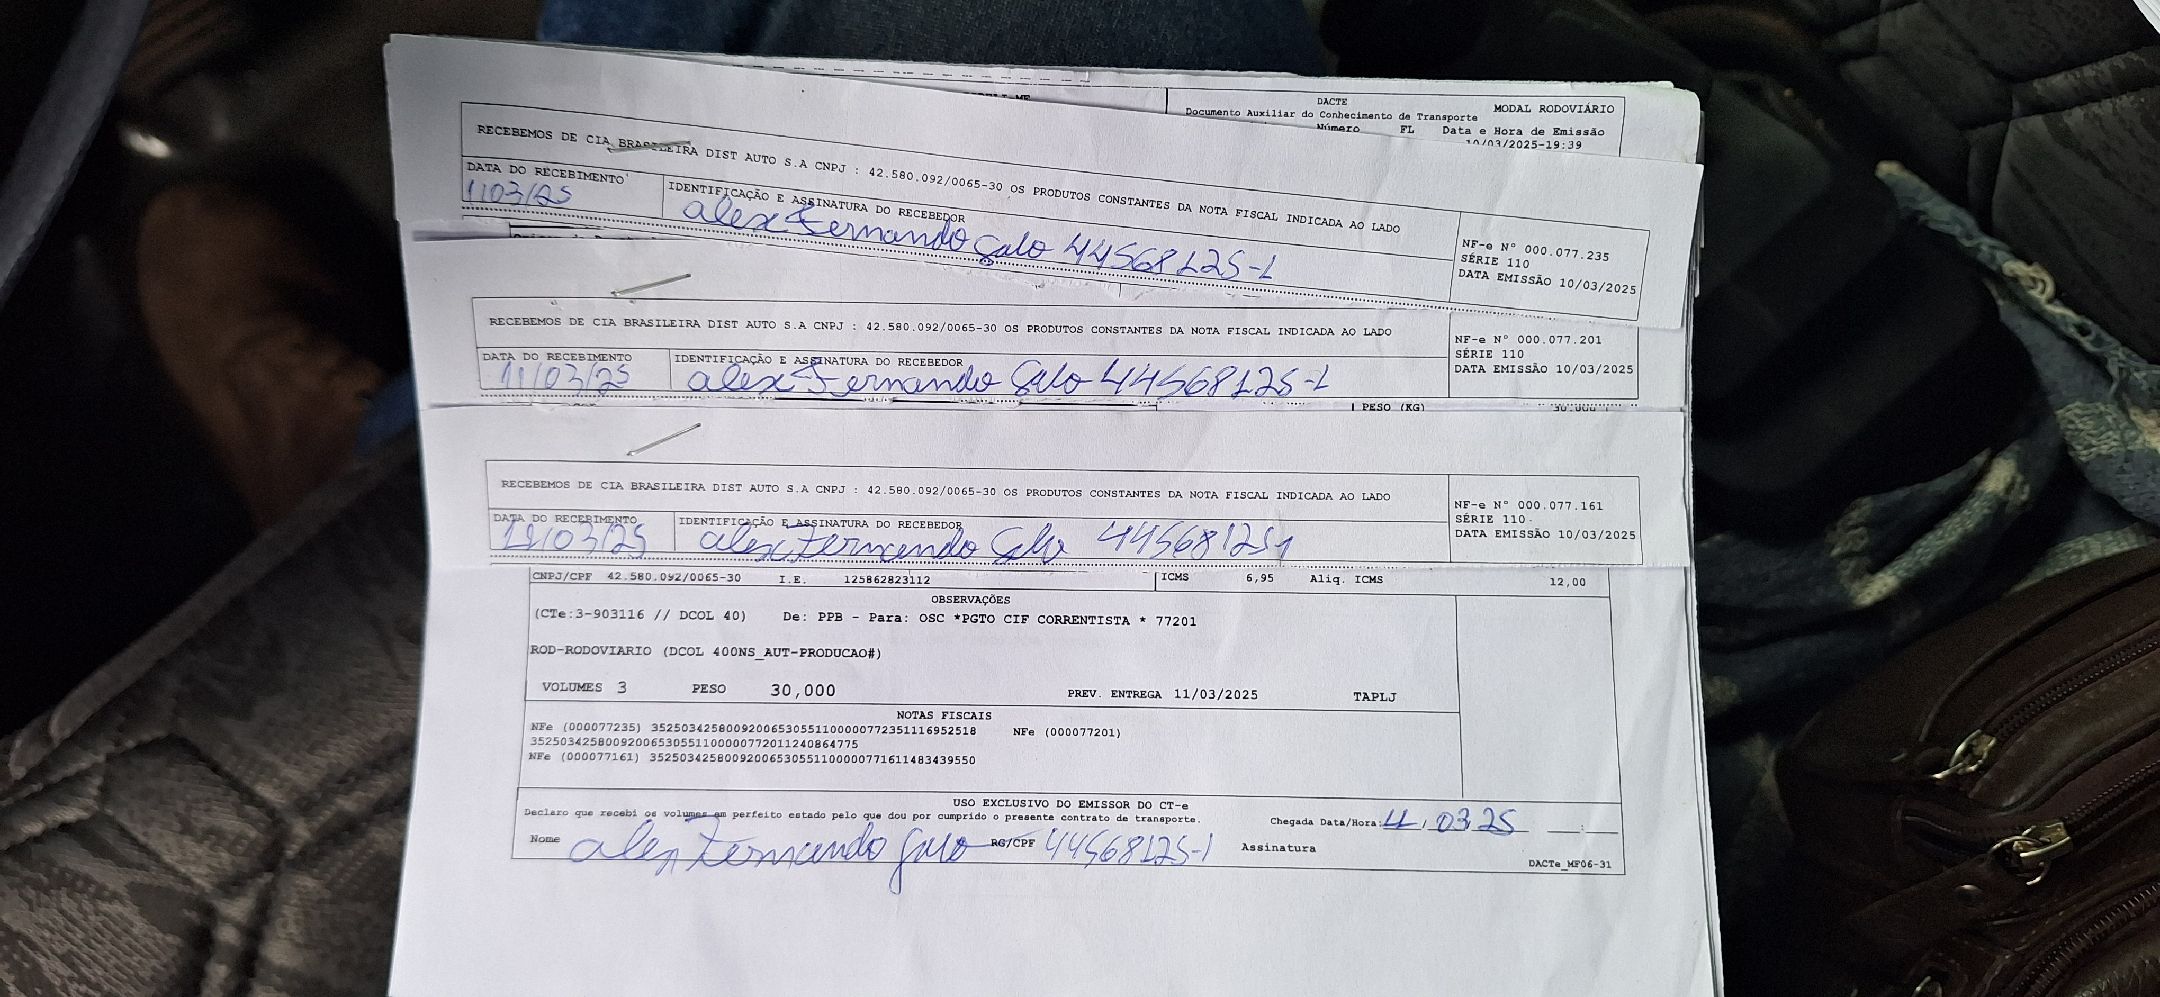 DACTE
MODAL RODOVIÁRIO
Documento Auxiliar do Conhecimento de Transporte
Número FL Data e Hora de Emissão
10/03/2025-19:39
RECEBEMOS DE CIA BRASILEIRA DIST AUTO S.A CNPJ : 42.580.092/0065-30 OS PRODUTOS CONSTANTES DA NOTA FISCAL INDICADA AO LADO
DATA DO RECEBIMENTO IDENTIFICAÇÃO E ASSINATURA DO RECEBEDOR
11/03/25 alex Fernando Galo 44568125-1
NF-e Nº 000.077.235
SÉRIE 110
DATA EMISSÃO 10/03/2025
RECEBEMOS DE CIA BRASILEIRA DIST AUTO S.A CNPJ : 42.580.092/0065-30 OS PRODUTOS CONSTANTES DA NOTA FISCAL INDICADA AO LADO
DATA DO RECEBIMENTO IDENTIFICAÇÃO E ASSINATURA DO RECEBEDOR
11/03/25 alex Fernando Galo 44568125-1
NF-e Nº 000.077.201
SÉRIE 110
DATA EMISSÃO 10/03/2025
PESO (KG)
RECEBEMOS DE CIA BRASILEIRA DIST AUTO S.A CNPJ : 42.580.092/0065-30 OS PRODUTOS CONSTANTES DA NOTA FISCAL INDICADA AO LADO
DATA DO RECEBIMENTO IDENTIFICAÇÃO E ASSINATURA DO RECEBEDOR
11/03/25 alex Fernando Galo 445681251
NF-e Nº 000.077.161
SÉRIE 110
DATA EMISSÃO 10/03/2025
CNPJ/CPF 42.580.092/0065-30 I.E. 125862823112 ICMS 6,95 Aliq. ICMS 12,00
OBSERVAÇÕES
(CTe:3-903116 // DCOL 40) De: PPB - Para: OSC *PGTO CIF CORRENTISTA * 77201
ROD-RODOVIARIO (DCOL 400NS_AUT-PRODUCAO#)
VOLUMES 3 PESO 30,000 PREV. ENTREGA 11/03/2025 TAPLJ
NOTAS FISCAIS
NFe (000077235) 35250342580092006530551100000772351116952518 NFe (000077201)
35250342580092006530551100000772011240864775
NFe (000077161) 35250342580092006530551100000771611483439550
USO EXCLUSIVO DO EMISSOR DO CT-e
Declaro que recebi os volumes em perfeito estado pelo que dou por cumprido o presente contrato de transporte. Chegada Data/Hora: 11/03/25
Nome alex Fernando Galo RG/CPF 44568125-1 Assinatura
DACTe_MF06-31